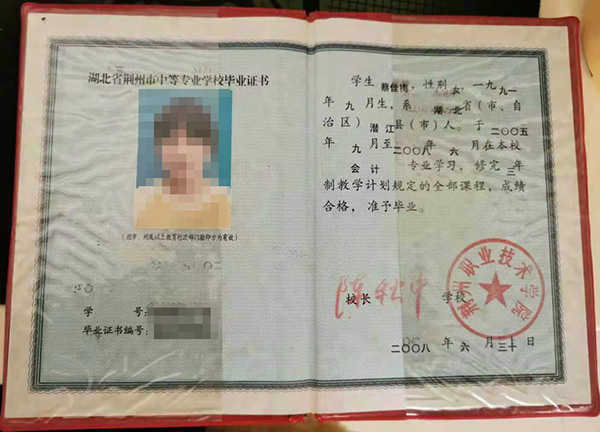 湖北省荆州市中等专业学校毕业证书
(经市、州及以上教育行政部门验印方为有效)
学 号:
毕业证书编号:
学生 蔡佳雨 ,性别 女 ,一九九一
年 九 月生,系 湖北 省(市、自
治区) 潜江 县(市)人。于 二〇〇五
年 九 月至 二〇〇八 年 六 月在本校
会计 专业学习,修完 三 年
制教学计划规定的全部课程,成绩
合格,准予毕业。
校长 学校
荆州职业技术学院
二〇〇八 年 六 月 三十 日